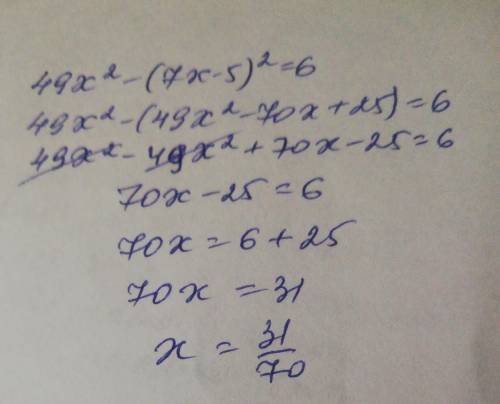 49x² - (7x-5)² = 6
49x² - (49x² - 70x + 25) = 6
49x² - 49x² + 70x - 25 = 6
70x - 25 = 6
70x = 6 + 25
70x = 31
x = 31/70